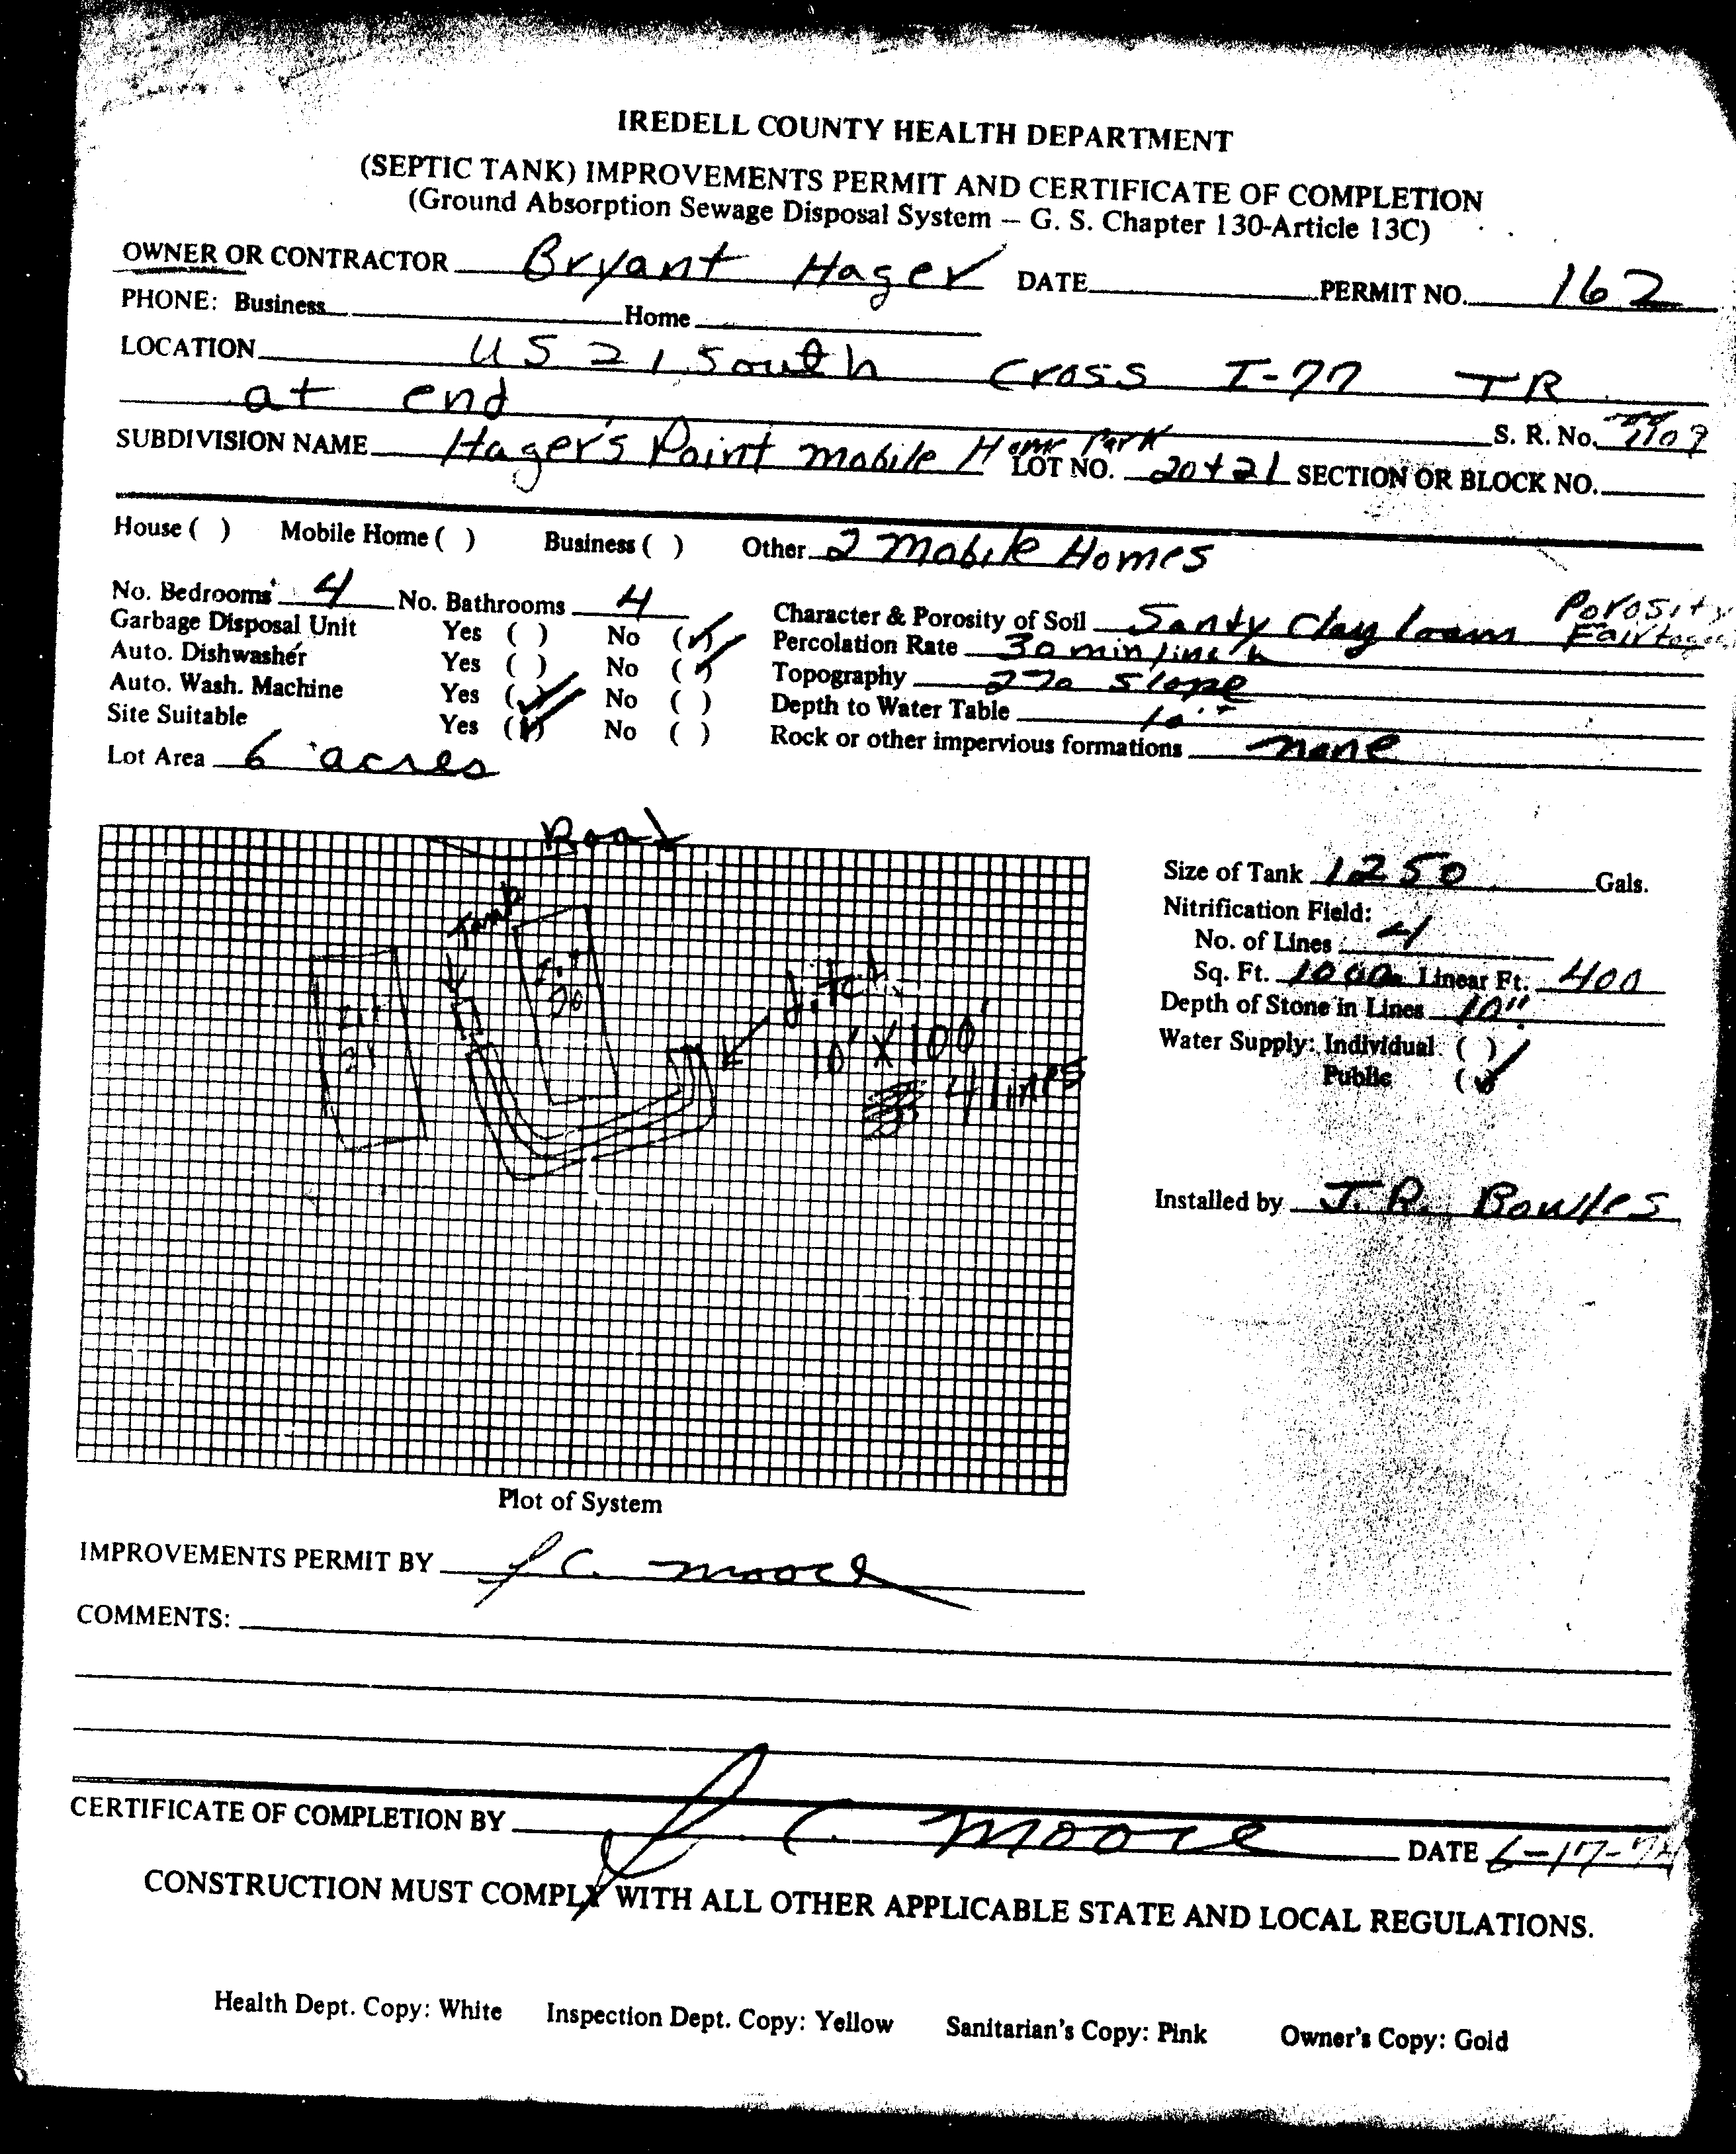 IREDELL COUNTY HEALTH DEPARTMENT
(SEPTIC TANK) IMPROVEMENTS PERMIT AND CERTIFICATE OF COMPLETION
(Ground Absorption Sewage Disposal System – G. S. Chapter 130-Article 13C)
OWNER OR CONTRACTOR Bryant Hager DATE PERMIT NO. 162
PHONE: Business Home
LOCATION US 21 South Cross I-77 TR
at end
S. R. No. 1109
SUBDIVISION NAME Hager's Point mobile Home Park LOT NO. 20+21 SECTION OR BLOCK NO.
House ( ) Mobile Home ( ) Business ( ) Other 2 Mobile Homes
No. Bedrooms 4 No. Bathrooms 4 Character & Porosity of Soil Sandy Clay loam Porosity Fair to
Garbage Disposal Unit Yes ( ) No (✓) Percolation Rate 30 min/inch
Auto. Dishwasher Yes ( ) No (✓) Topography 2% Slope
Auto. Wash. Machine Yes (✓) No ( ) Depth to Water Table 10'
Site Suitable Yes (✓) No ( ) Rock or other impervious formations none
Lot Area 6 acres
Road
Size of Tank 1250 Gals.
Tank
Nitrification Field:
No. of Lines 4
Lot 20
Lot 21
ditch
Sq. Ft. 1000 Linear Ft. 400
Depth of Stone in Lines 10"
10' X 100'
Water Supply: Individual ( )
4 lines
Public (✓)
Installed by J. R. Bowles
Plot of System
IMPROVEMENTS PERMIT BY J C. Moore
COMMENTS:
CERTIFICATE OF COMPLETION BY J. C. Moore DATE 6-17-
CONSTRUCTION MUST COMPLY WITH ALL OTHER APPLICABLE STATE AND LOCAL REGULATIONS.
Health Dept. Copy: White Inspection Dept. Copy: Yellow Sanitarian's Copy: Pink Owner's Copy: Gold